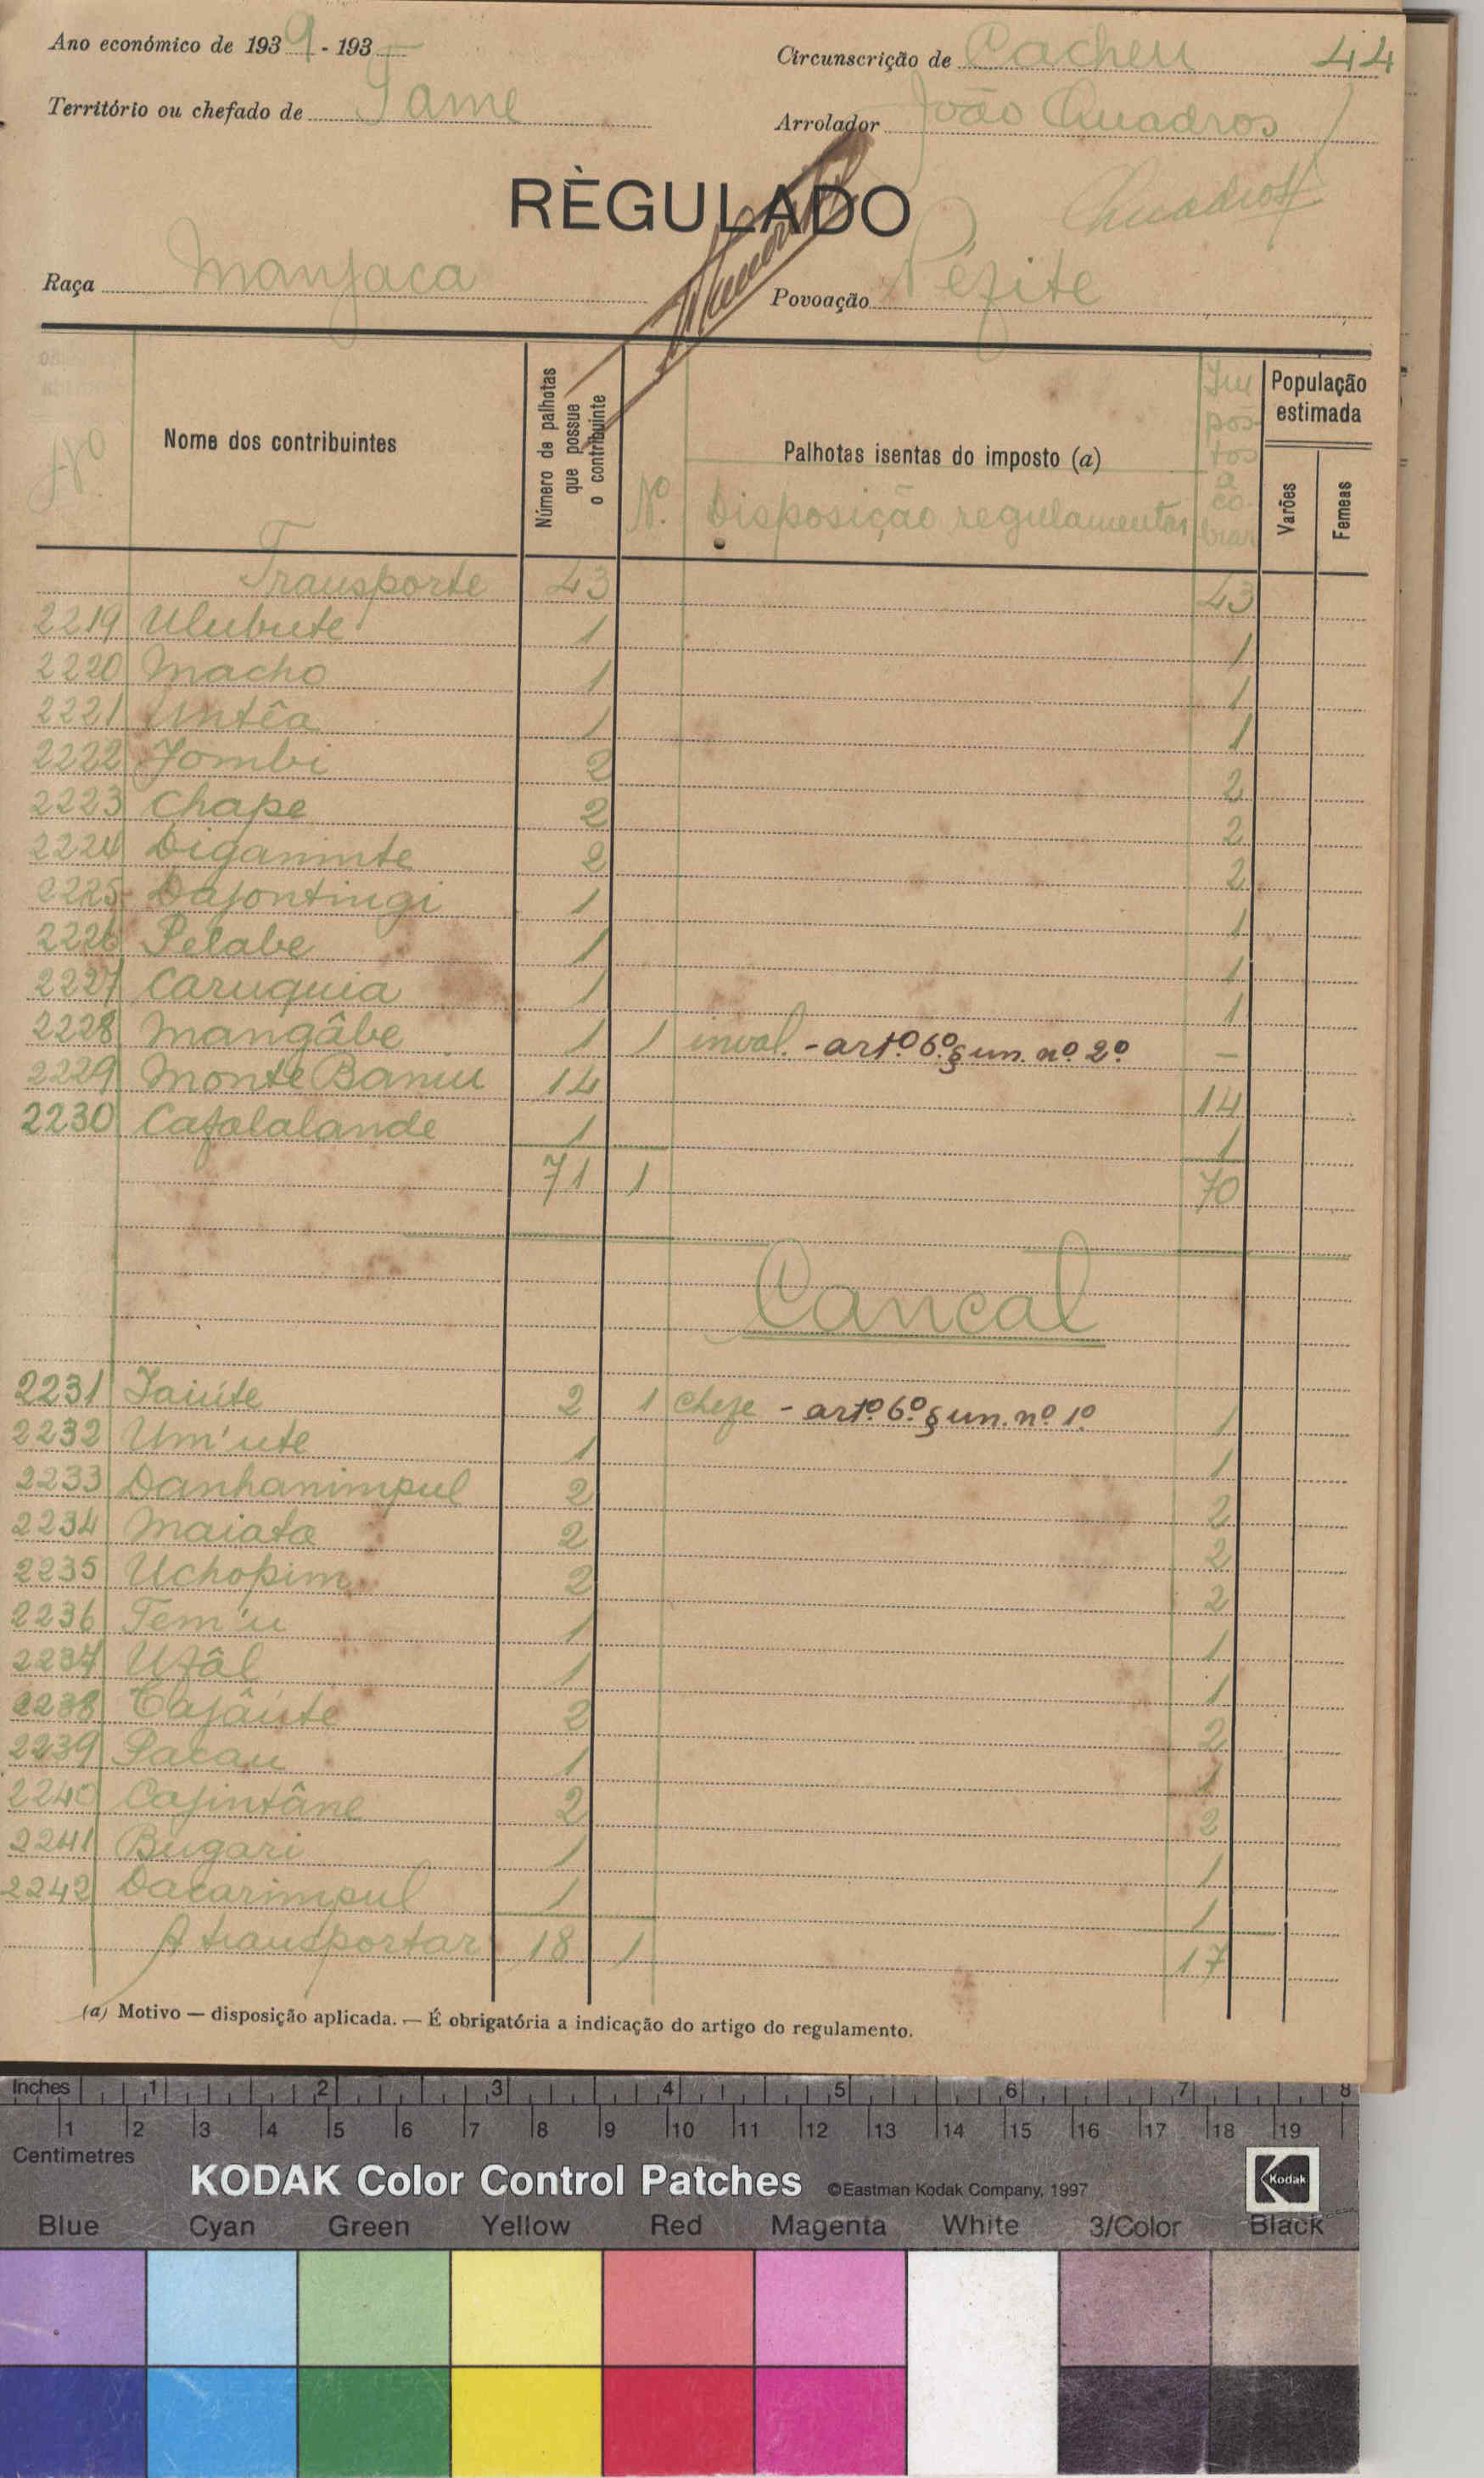 Ano económico de 1939 - 193
Circunscrição de Cacheu 44
Território ou chefado de Tame
Arrolador João Quadros
RÈGULADO
Quadros
Raça Manjaca
Povoação Pézite
Nº
Nome dos contribuintes
Número de palhotas
que possue
o contribuinte
Nº.
Palhotas isentas do imposto (a)
Disposição regulamentar
Im
pos-
tos
a
co-
brar
População
estimada
Varões
Femeas
Transporte 43 43
2219 Ulubute 1 1
2220 Macho 1 1
2221 Untêa 1 1
2222 Jombi 2 2
2223 Chape 2 2
2224 Diganinte 2 2
2225 Dajontingi 1 1
2226 Pelabe 1 1
2227 Caruquia 1 1
2228 Mangâbe 1 1 inval. - artº. 6º. § un. nº. 2º —
2229 Monte Baniu 14 14
2230 Cafalalande 1 1
71 1 70
Cancal
2231 Jaiúte 2 1 chefe - artº. 6º. § un. nº 1º 1
2232 Um'ute 1 1
2233 Danhanimpul 2 2
2234 Maiata 2 2
2235 Uchopim 2 2
2236 Tem'u 1 1
2237 Ufâl 1 1
2238 Cajâúte 2 2
2239 Pacau 1 1
2240 Cajintâne 2 2
2241 Bugari 1 1
2242 Dacarimpul 1 1
A transportar 18 1 17
(a) Motivo — disposição aplicada. — É obrigatória a indicação do artigo do regulamento.
Inches 1 2 3 4 5 6 7 8
1 2 3 4 5 6 7 8 9 10 11 12 13 14 15 16 17 18 19
Centimetres
KODAK Color Control Patches ©Eastman Kodak Company, 1997 Kodak
Blue Cyan Green Yellow Red Magenta White 3/Color Black